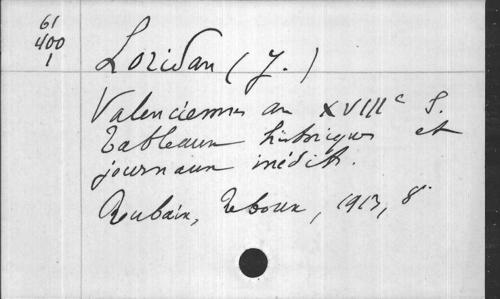 61
400
1
Loridan (J.)
Valenciennes au XVIIIe S.
Tableaux historiques et
journaux inédits.
Roubaix, Reboux, 1913, 8°